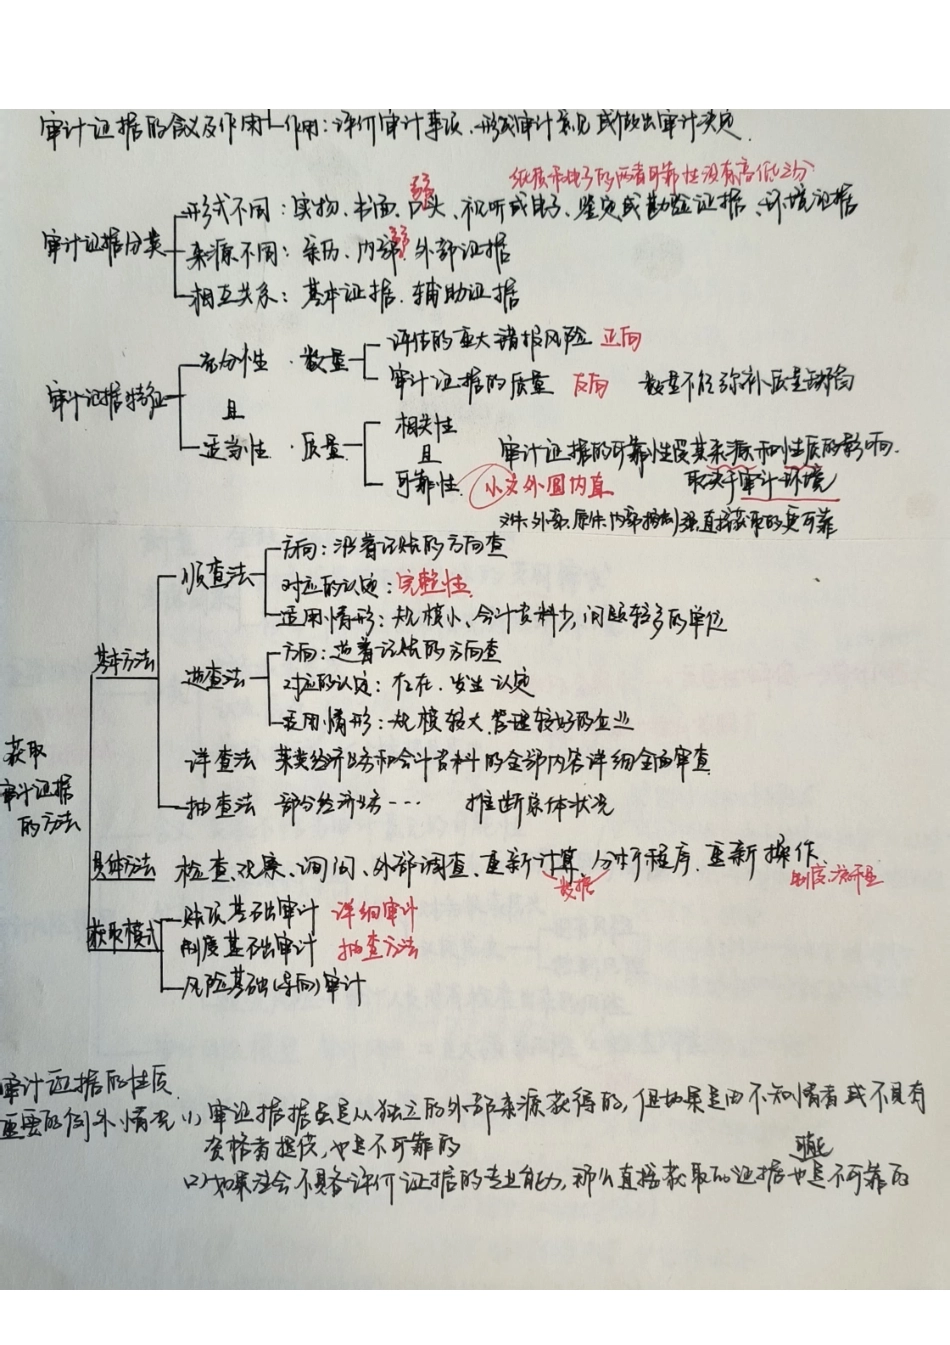 审计证据的含义及作用 作用：评价审计事项、形成审计意见或做出审计决定.
纸质和电子的两者可靠性没有高低之分
弱
形式不同：实物、书面、口头、视听或电子、鉴定或勘验证据、环境证据
审计证据分类
弱
来源不同：亲历、内部、外部证据
相互关系：基本证据、辅助证据
评估的重大错报风险 正向
充分性·数量
审计证据的质量 反向 数量不能弥补质量缺陷
审计证据特征
且
相关性
适当性·质量
且
审计证据的可靠性受其来源和性质的影响.
可靠性 外圆内直
取决于审计环境
外部、原件、内部控制强、直接获取的更可靠
方向：沿着记账的方向查
顺查法
对应的认定：完整性
适用情形：规模小、会计资料少、问题较多的单位
基本方法
方向：逆着记账的方向查
逆查法
对应的认定：存在、发生认定
适用情形：规模较大、管理较好的企业
获取
审计证据
的方法
详查法 某类经济业务和会计资料的全部内容详细全面审查
抽查法 部分经济业务… 推断总体状况
具体方法 检查、观察、询问、外部调查、重新计算、分析程序、重新操作.
数据
制度、流程
获取模式
账项基础审计 详细审计
制度基础审计 抽查方法
风险基础(导向)审计
审计证据的性质
重要的例外情况 (1) 审证据据虽是从独立的外部来源获得的，但如果是由不知情者或不具有
资格者提供，也是不可靠的
可能
(2) 如果注会不具备评价证据的专业能力，那么直接获取的证据也是不可靠的